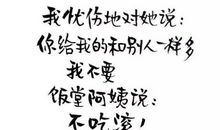 我忧伤地对她说：
你给我的和别人一样多
我不要
饭堂阿姨说：
不吃滚！